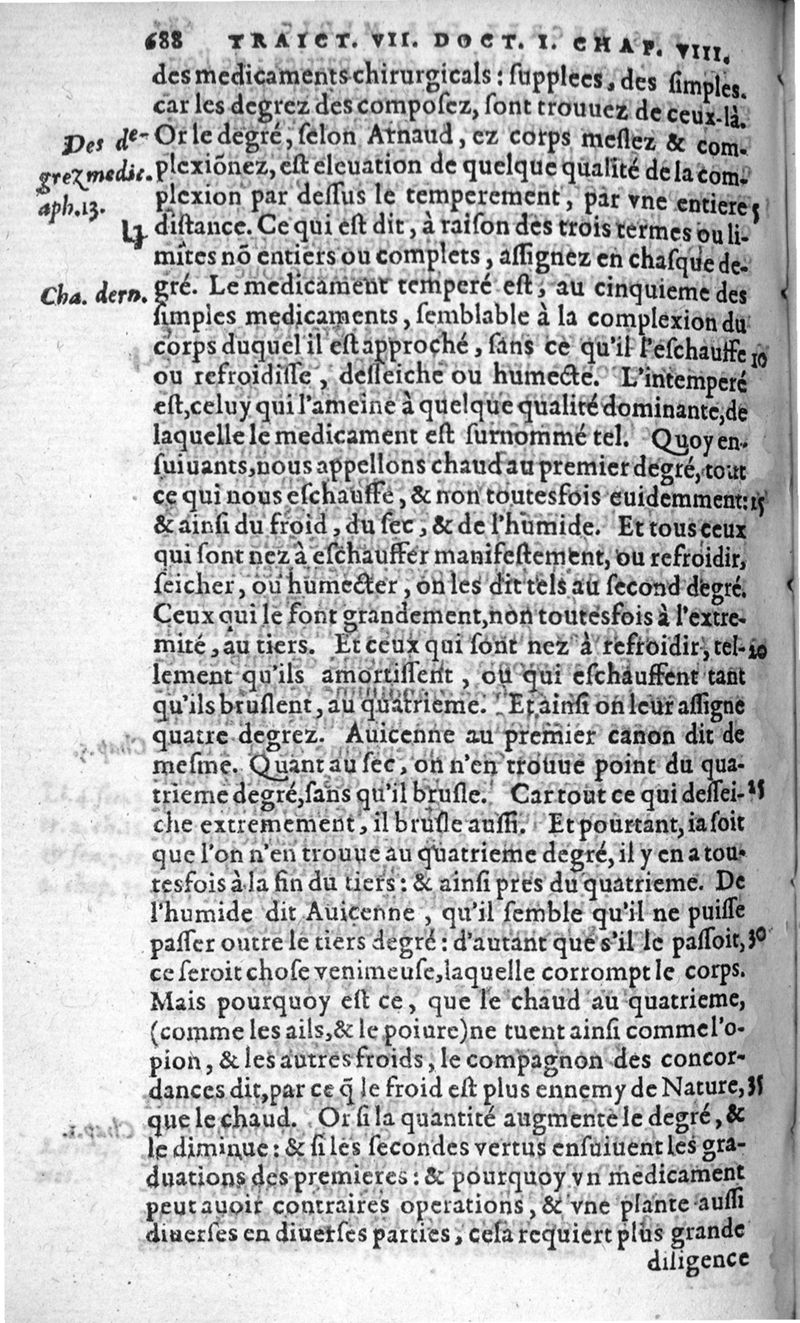 688 TRAICT. VII. DOCT. I. CHAP. VIII.
des medicaments chirurgicals : ſupplees, des ſimples.
car les degrez des compoſez, ſont trouuez de ceux-là.
Des de- Or le degré, ſelon Arnaud, ez corps meſlez & com-
grez medic. plexiõnez, eſt eleuation de quelque qualité de la com-
aph. 13. plexion par deſſus le temperement, par vne entiere 5
diſtance. Ce qui eſt dit, à raiſon des trois termes ou li-
mites nõ entiers ou complets, aſſignez en chaſque de-
Cha. dern. gré. Le medicament temperé eſt, au cinquieme des
ſimples medicaments, ſemblable à la complexion du
corps duquel il eſt approché, ſans ce qu'il l'eſchauffe 10
ou refroidiſſe, deſſeiche ou humecte. L'intemperé
eſt, celuy qui l'ameine à quelque qualité dominante, de
laquelle le medicament eſt ſurnommé tel. Quoy en-
ſuiuants, nous appellons chaud au premier degré, tout
ce qui nous eſchauffe, & non toutesfois euidemment: 15
& ainſi du froid, du ſec, & de l'humide. Et tous ceux
qui ſont nez à eſchauffer manifeſtement, ou refroidir,
ſeicher, ou humecter, on les dit tels au ſecond degré.
Ceux qui le font grandement, non toutesfois à l'extre-
mité, au tiers. Et ceux qui ſont nez à refroidir, tel- 20
lement qu'ils amortiſſent, ou qui eſchauffent tant
qu'ils bruſlent, au quatrieme. Et ainſi on leur aſſigne
quatre degrez. Auicenne au premier canon dit de
meſme. Quant au ſec, on n'en trouue point du qua-
trieme degré, ſans qu'il bruſle. Car tout ce qui deſſei- 25
che extremement, il bruſle auſſi. Et pourtant, ia ſoit
que l'on n'en trouue au quatrieme degré, il y en a tou-
tesfois à la fin du tiers : & ainſi pres du quatrieme. De
l'humide dit Auicenne, qu'il ſemble qu'il ne puiſſe
paſſer outre le tiers degré : d'autant que s'il le paſſoit, 30
ce ſeroit choſe venimeuſe, laquelle corrompt le corps.
Mais pourquoy eſt ce, que le chaud au quatrieme,
(comme les ails, & le poiure) ne tuent ainſi comme l'o-
pion, & les autres froids, le compagnon des concor-
dances dit, par ce q̃ le froid eſt plus ennemy de Nature, 35
que le chaud. Or ſi la quantité augmente le degré, &
le diminue : & ſi les ſecondes vertus enſuiuent les gra-
duations des premieres : & pourquoy vn medicament
peut auoir contraires operations, & vne plante auſſi
diuerſes en diuerſes parties, cela requiert plus grande
diligence